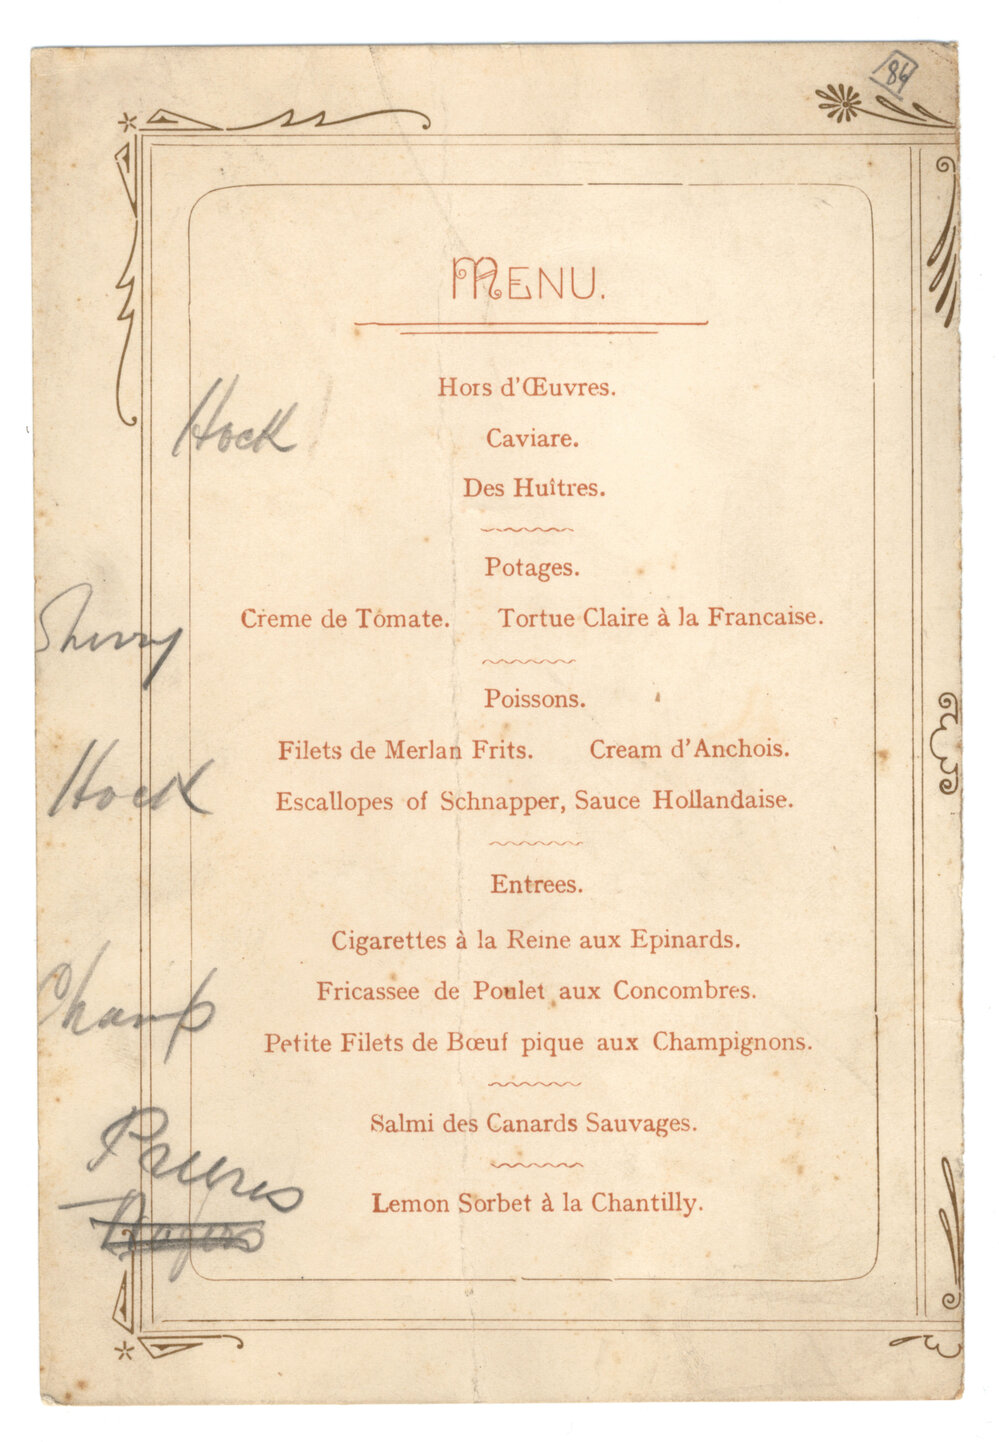 84
MENU.
Hors d'Œuvres.
Hock
Caviare.
Des Huîtres.
Potages.
Sherry
Creme de Tomate. Tortue Claire à la Francaise.
Poissons.
Filets de Merlan Frits. Cream d'Anchois.
Hock
Escallopes of Schnapper, Sauce Hollandaise.
Entrees.
Cigarettes à la Reine aux Epinards.
Champ
Fricassee de Poulet aux Concombres.
Petite Filets de Bœuf pique aux Champignons.
Salmi des Canards Sauvages.
Lemon Sorbet à la Chantilly.